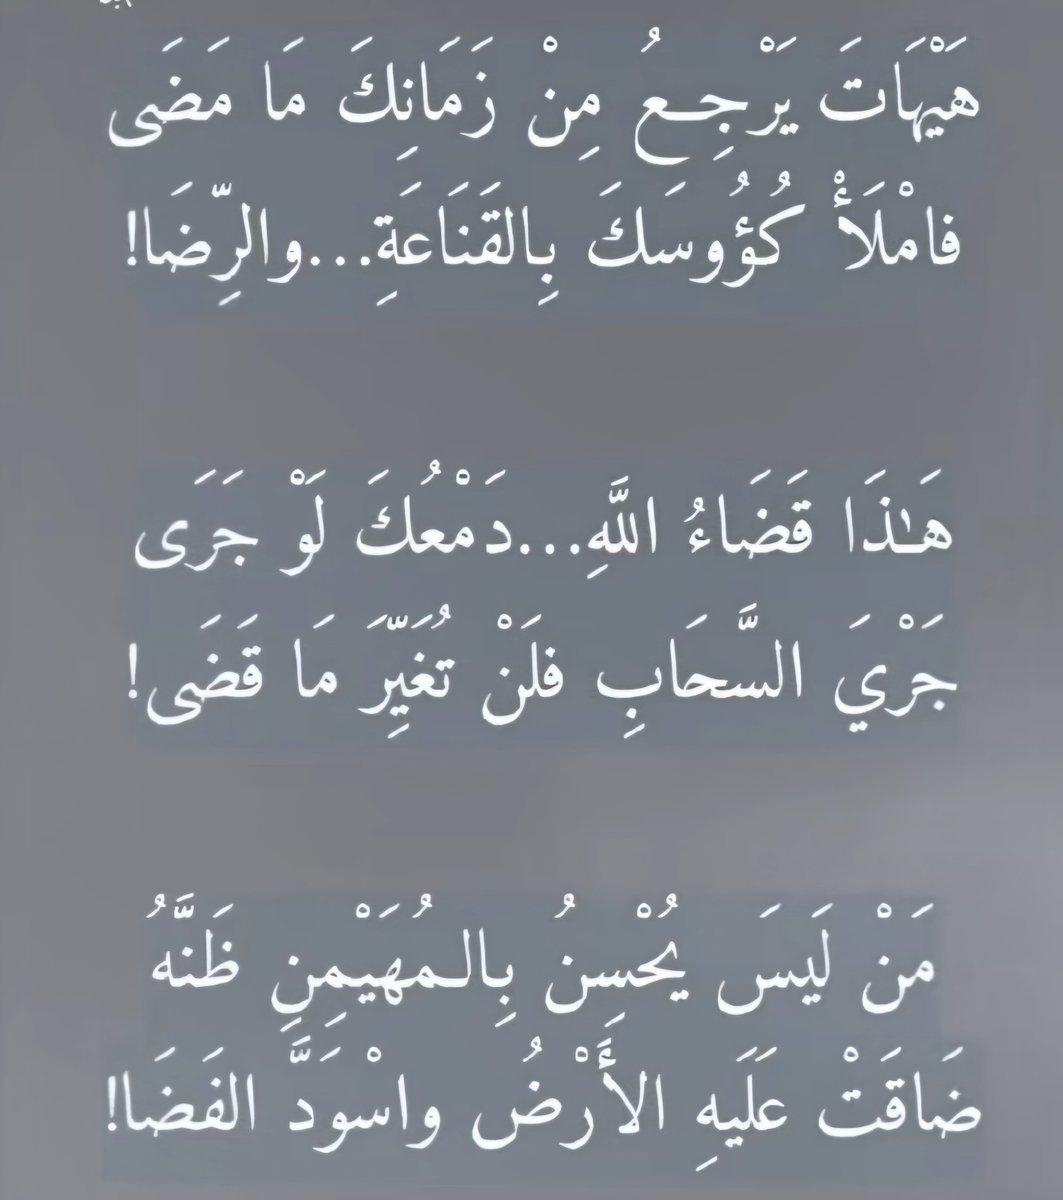 هَيْهَاتَ يَرْجِعُ مِنْ زَمَانِكَ مَا مَضَى
فامْلَأْ كُؤُوسَكَ بِالقَنَاعَةِ...والرِّضَا!
هَٰذَا قَضَاءُ اللَّهِ...دَمْعُكَ لَوْ جَرَى
جَرْيَ السَّحَابِ فلَنْ تُغَيِّرَ مَا قَضَى!
مَنْ لَيسَ يُحْسِنُ بِالمُهَيْمِنِ ظَنَّهُ
ضَاقَتْ عَلَيهِ الأَرْضُ واسْوَدَّ الفَضَا!